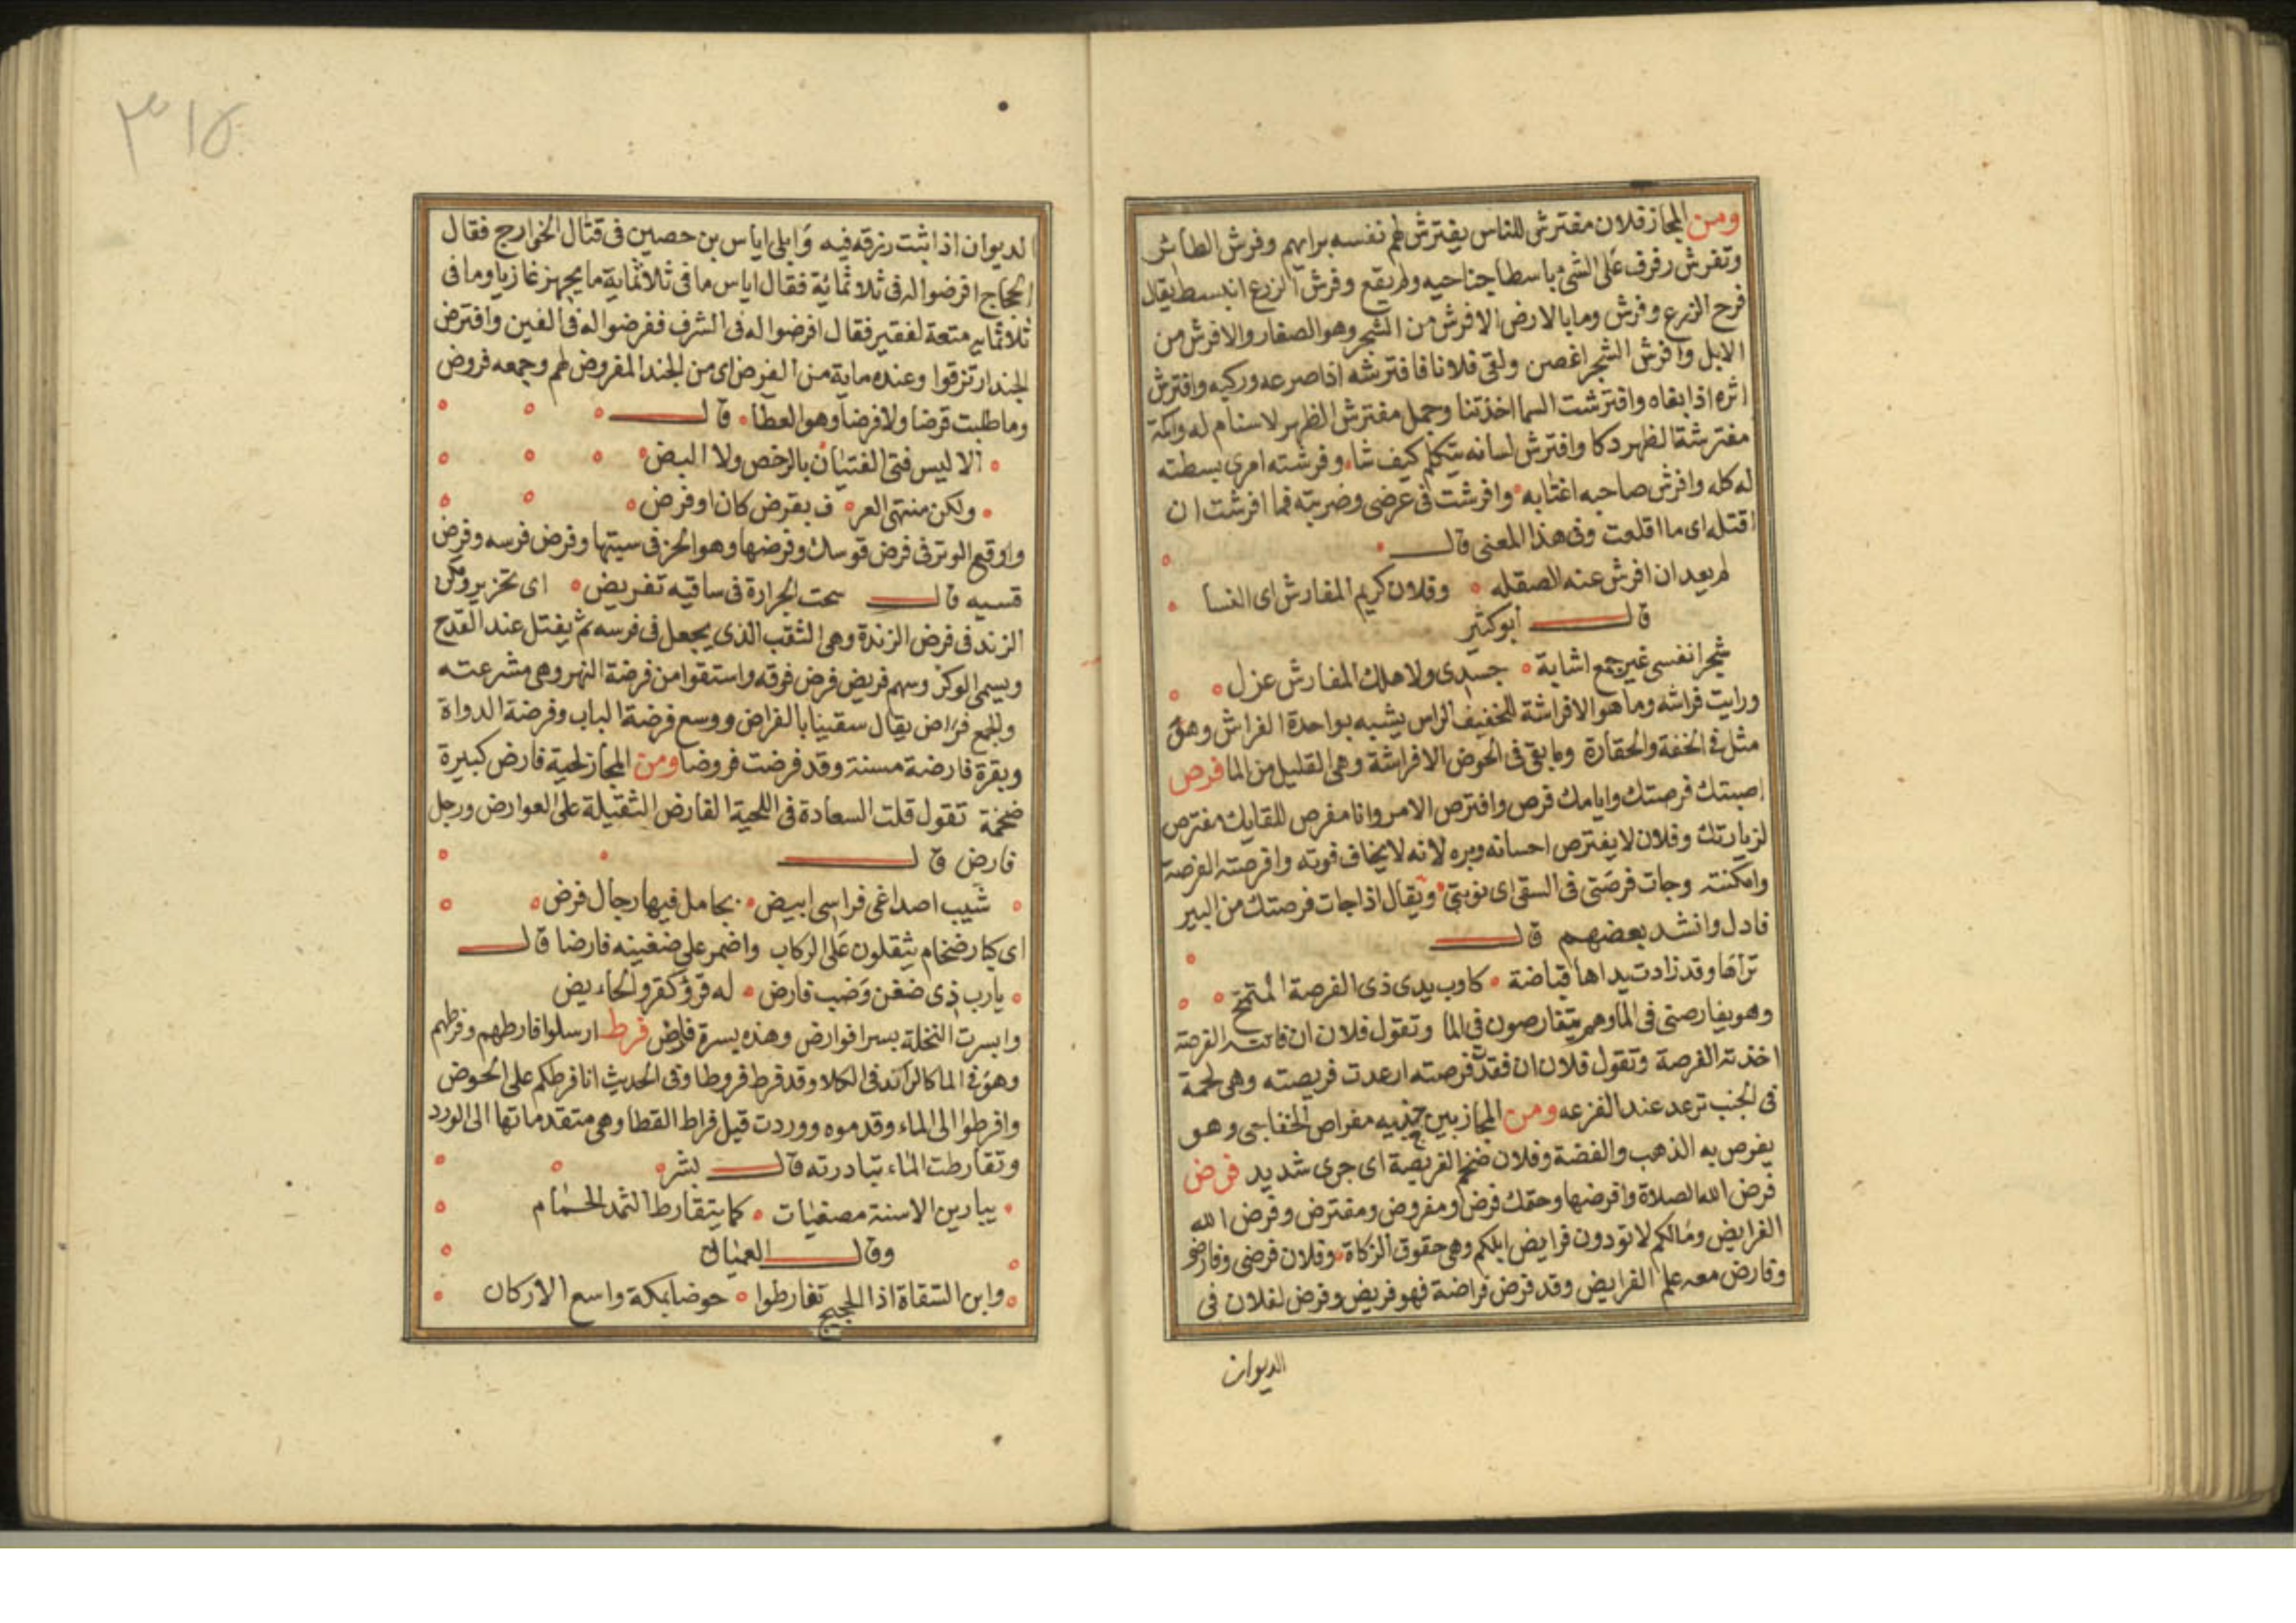 ومن المجاز فلان مفترش للناس يفترش لهم نفسه برايهم وفرش الطائر
وتفرش رفرف على الشئ باسطا جناحيه ولم يقع وفرش الزرع انبسط يقال
فرح الزرع وفرش وما بالارض الا فرش من الشجر وهو الصغار والافرش من
الابل وافرش الشجر اغصن ولقى فلانا فافترشه اذا صرعه وركبه وافترش
اثره اذا بقاه وافترشت السما اخذتنا وجمل مفترش الظهر لا سنام له واكمة
مفترشة الظهر دكا وافترش لسانه يتكلم كيف شا وفرشته امرى بسطته
له كله وافرش صاحبه اغتابه وافرشت فى عرضى وضربته فما افرشت ان
اقتله اى ما اقلعت وفى هذا المعنى قال
لم يعد ان افرش عنه الصقله وفلان كريم المفارش اى النسا
قال أبو كثير
شجرا نفسى غير جمع اشابة جسدى ولا هلك المفارش عزل
ورايت فراشه وما هو الا فراشة للخفيف الراس يشبه بواحدة الفراش وهو
مثل فى الخفة والحقارة وما بقى فى الحوض الا فراشة وهى القليل من الما فرص
اصبتك فرصتك وايامك فرص وافترص الامر وانا مفرص للقايك مفترص
لزيارتك وفلان لا يفترص احسانه وبره لانه لا يخاف فوته وافرصته الفرصة
وامكنته وجات فرصتى فى السقى اى نوبتى ويقال اذا جات فرصتك من البير
فادل وانشد بعضهم قال
تراها وقد زادت يداها قباضة كاوب يدى ذى الفرصة المتمتح
وهو يفارصنى فى الما وهم يتفارصون فى الما وتقول فلان ان فاتته الفرصة
اخذته الفرصة وتقول فلان ان فقد فرصته ارعدت فريصته وهى لحمة
فى الجنب ترعد عند الفزعه ومن المجاز بين جنبيه مفراص الخفاجى وهو
يفرص به الذهب والفضة وفلان ضخم الفريصة اى جرى شديد فرض
فرض الله الصلاة وافرضها وحقك فرض ومفروض ومفترض وفرض الله
الفرايض ومالكم لا تودون فرايض ابلكم وهى حقوق الزكاة وفلان فرضى وفارض
وفارض معه علم الفرايض وقد فرض فراضة فهو فريض وفرض لفلان فى
الديوان
٣١٥
الديوان اذا ثبت رزقه فيه وابلى اياس بن حصين فى قتال الخوارج فقال
الحجاج افرضوا له فى ثلاثمائة فقال اياس ما فى ثلاثماية ما يجهز غازيا وما فى
ثلاثمايه متعة لفقير فقال افرضوا له فى الشرف ففرضوا له فى الفين وافترض
الجند ارتزقوا وعنده ماية من الفرض اى من الجند المفروض لهم وجمعه فروض
وما طلبت قرضا ولا فرضا وهو العطا قال
الا ليس فتى الفتيان بالرخص ولا البض
ولكن منتهى العر ف بقرض كان او فرض
واوقع الوتر فى فرض قوسك وفرضها وهو الحز فى سيتها وفرض فرسه وفرض
قسيه قال سحت الجرارة فى ساقيه تفريض اى تحزيز ومكن
الزند فى فرض الزندة وهى الثقب الذى يجعل فى فرسه ثم يفتل عند القدح
ويسمى الوكز وسهم فريض فرض فوقه واستقوا من فرضة النهر وهى مشرعته
والجمع فراض يقال سقينا بالفراض ووسع فرضة الباب وفرضة الدواة
وبقرة فارضة مسنة وقد فرضت فروضا ومن المجاز لحية فارض كبيرة
ضخمة تقول قلت السعادة فى اللحية الفارض الثقيلة على العوارض ورجل
فارض قال
شيب اصداغى فراسى ابيض بحامل فيها رجال فرض
اى كبار ضخام يثقلون على الركاب واضمر على ضغينه فارضا قال
يا رب ذى ضغن وضب فارض له قرؤ كقرو الحاءيض
وابسرت النخلة بسرا فوارض وهذه بسرة فارض فرط ارسلوا فارطهم وفرطهم
وهو فى الما كالرائد فى الكلا وقد فرط فروطا وفى الحديث انا فرطكم على الحوض
وافرطوا الى الماء وقدموه ووردت قبل فراط القطا وهى متقدماتها الى الورد
وتفارطت الماء تبادرته قال بشر
يبارين الاسنة مصغيات كما يتفارط الثمد الحمام
وقال العمانى
وابن السقاة اذا الحجيج تفارطوا حوضا بمكة واسع الاركان